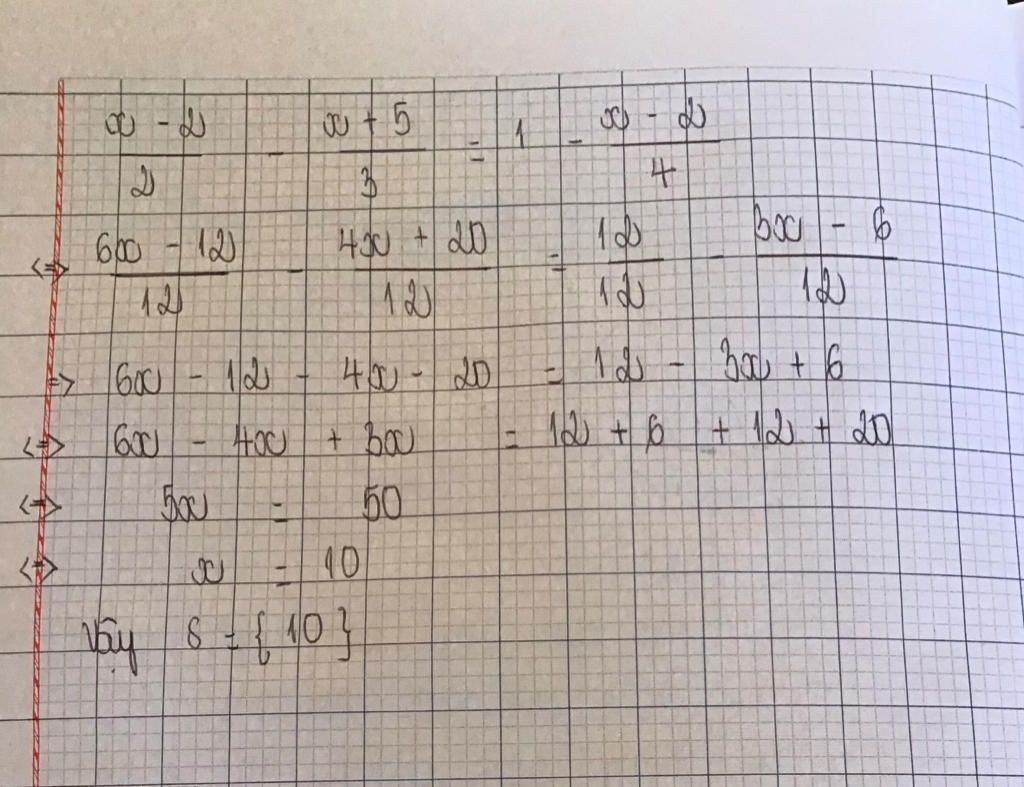 x - 2 / 2 - x + 5 / 3 = 1 - x - 2 / 4
<=> 6x - 12 / 12 - 4x + 20 / 12 = 12 / 12 - 3x - 6 / 12
=> 6x - 12 - 4x - 20 = 12 - 3x + 6
<=> 6x - 4x + 3x = 12 + 6 + 12 + 20
<=> 5x = 50
<=> x = 10
Vậy S = { 10 }